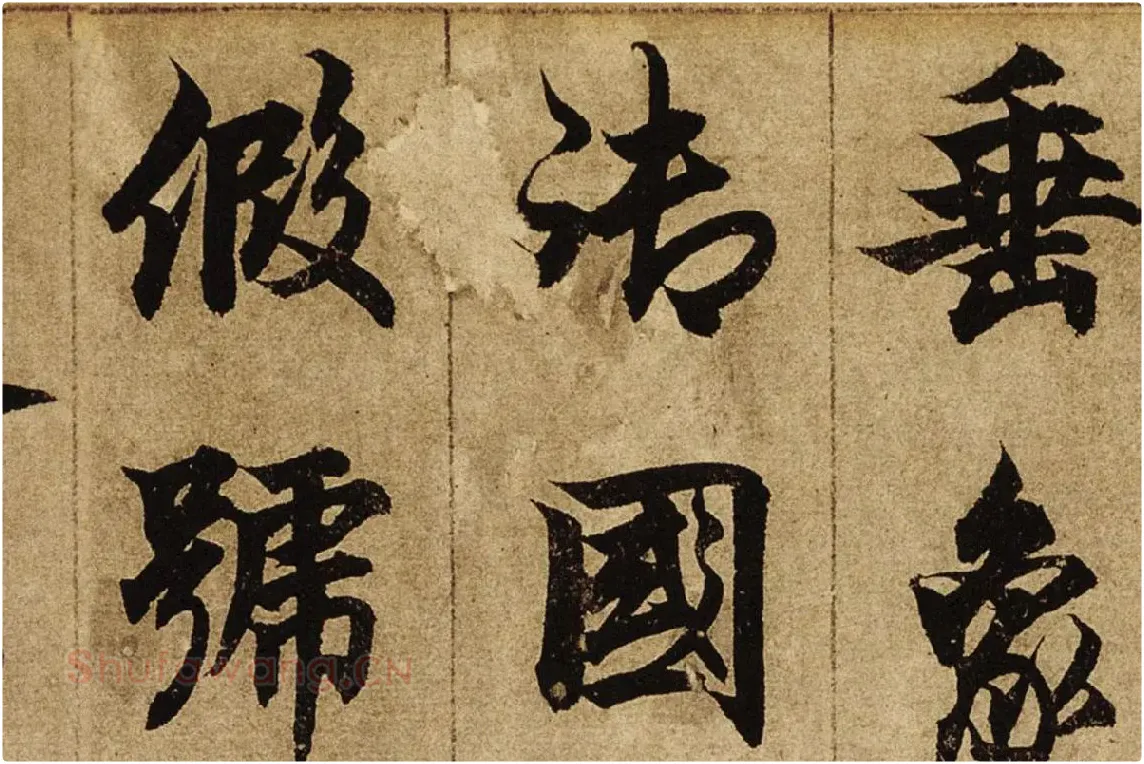 垂象
法國
假號
Shufawang.CN